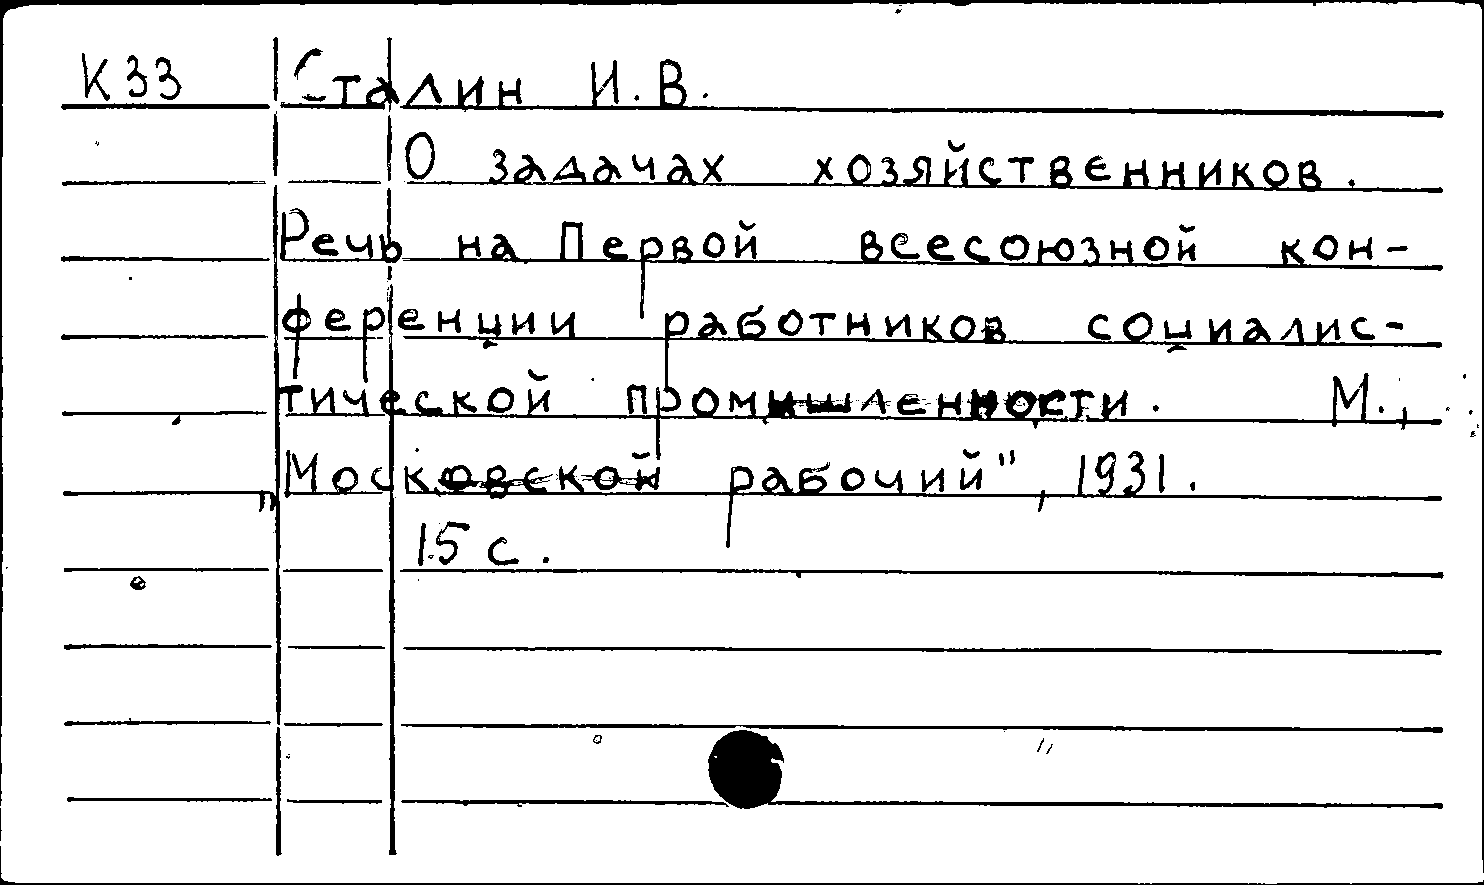 К33 Сталин И.В.
О задачах хозяйственников.
Речь на Первой всесоюзной кон-
ференции работников социалис-
тической промышленности. М.,
„Московской рабочий", 1931.
15 с.